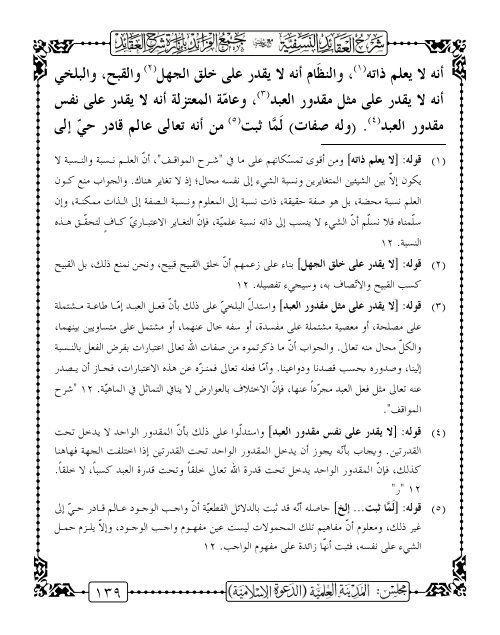 شرح العقائد النسفية مع حاشيته جمع الفرائد بإنارة شرح العقائد
أنه لا يعلم ذاته(١)، والنظّام أنه لا يقدر على خلق الجهل(٢) والقبح، والبلخي
أنه لا يقدر على مثل مقدور العبد(٣)، وعامّة المعتزلة أنه لا يقدر على نفس
مقدور العبد(٤). (وله صفات) لَمَّا ثبت(٥) من أنه تعالى عالم قادر حيّ إلى
(١) قوله: [لا يعلم ذاته] ومن أقوى تمسّكاتهم على ما في "شرح المواقف"، أنّ العلم نسبة والنسبة لا
يكون إلاّ بين الشيئين المتغايرين ونسبة الشيء إلى نفسه محال؛ إذ لا تغاير هناك. والجواب منع كون
العلم نسبة محضة، بل هو صفة حقيقة، ذات نسبة إلى المعلوم ونسبة الصفة إلى الذات ممكنة، وإن
سلّمناه فلا نسلّم أنّ الشيء لا ينسب إلى ذاته نسبة علميّة، فإنّ التغاير الاعتباريّ كافٍ لتحقّق هذه
النسبة. ١٢
(٢) قوله: [لا يقدر على خلق الجهل] بناء على زعمهم أنّ خلق القبيح قبيح، ونحن نمنع ذلك، بل القبيح
كسب القبيح والاتّصاف به، وسيجيء تفصيله. ١٢
(٣) قوله: [لا يقدر على مثل مقدور العبد] واستدلّ البلخيّ على ذلك بأنّ فعل العبد إمّا طاعة مشتملة
على مصلحة، أو معصية مشتملة على مفسدة، أو سفه خال عنهما، أو مشتمل على متساويين بينهما،
والكلّ محال منه تعالى. والجواب أنّ ما ذكرتموه من صفات الله تعالى اعتبارات بفرض الفعل بالنسبة
إلينا، وصدوره بحسب قصدنا ودواعينا. وأمّا فعله تعالى فمنزّه عن هذه الاعتبارات، فجاز أن يصدر
عنه تعالى مثل فعل العبد مجرّداً عنها، فإنّ الاختلاف بالعوارض لا ينافي التماثل في الماهيّة. ١٢ "شرح
المواقف".
(٤) قوله: [لا يقدر على نفس مقدور العبد] واستدلّوا على ذلك بأنّ المقدور الواحد لا يدخل تحت
القدرتين. ويجاب بأنّه يجوز أن يدخل المقدور الواحد تحت القدرتين إذا اختلفت الجهة فهاهنا
كذلك، فإنّ المقدور الواحد يدخل تحت قدرة الله تعالى خلقاً وتحت قدرة العبد كسباً، لا خلقاً.
١٢ "ر"
(٥) قوله: [لَمَّا ثبت... إلخ] حاصله أنّه قد ثبت بالدلائل القطعيّة أنّ واجب الوجود عالم قادر حيّ إلى
غير ذلك، ومعلوم أنّ مفاهيم تلك المحمولات ليست عين مفهوم واجب الوجود، وإلّا يلزم حمل
الشيء على نفسه، فثبت أنّها زائدة على مفهوم الواجب. ١٢
مجلس: المدينة العلمية (الدعوة الإسلامية)
١٣٩